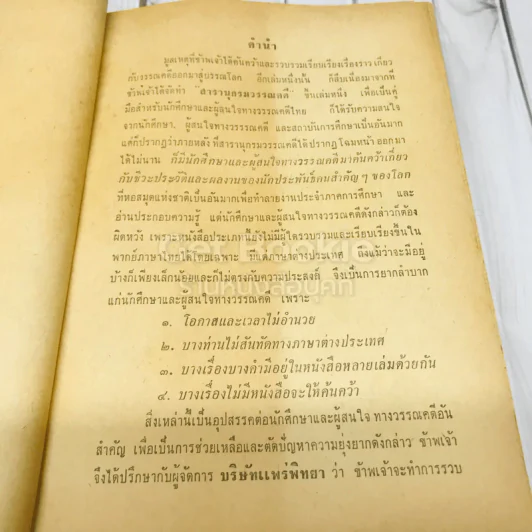 คำนำ
มูลเหตุที่ข้าพเจ้าได้ค้นคว้าและรวบรวมเรียบเรียงเรื่องราว เกี่ยว
กับวรรณคดีออกมาสู่บรรณโลก อีกเล่มหนึ่งนั้น ก็สืบเนื่องมาจากที่
ข้าพเจ้าได้จัดทำ "สารานุกรมวรรณคดี" ขึ้นเล่มหนึ่ง เพื่อเป็นคู่
มือสำหรับนักศึกษาและผู้สนใจทางวรรณคดีไทย ก็ได้รับความสนใจ
จากนักศึกษา, ผู้สนใจทางวรรณคดี และสถาบันการศึกษาเป็นอันมาก
แต่ก็ปรากฏว่าภายหลัง ที่สารานุกรมวรรณคดีได้ปรากฏ โฉมหน้า ออกมา
ได้ไม่นาน ก็มีนักศึกษาและผู้สนใจทางวรรณคดีมาค้นคว้าเกี่ยว
กับชีวะประวัติและผลงานของนักประพันธ์คนสำคัญๆ ของโลก
ที่หอสมุดแห่งชาติเป็นอันมากเพื่อทำรายงานประจำภาคการศึกษา และ
อ่านประกอบความรู้ แต่นักศึกษาและผู้สนใจทางวรรณคดีดังกล่าวก็ต้อง
ผิดหวัง เพราะหนังสือประเภทนี้ยังไม่มีผู้ใดรวบรวมและเรียบเรียงขึ้นใน
พากย์ภาษาไทยได้โดยเฉพาะ มีแต่ภาษาต่างประเทศ ถึงแม้ว่าจะมีอยู่
บ้างก็เพียงเล็กน้อยและก็ไม่ตรงกับความประสงค์ จึงเป็นการยากลำบาก
แก่นักศึกษาและผู้สนใจทางวรรณคดี เพราะ
๑. โอกาสและเวลาไม่อำนวย
๒. บางท่านไม่สันทัดทางภาษาต่างประเทศ
๓. บางเรื่องบางคำมีอยู่ในหนังสือหลายเล่มด้วยกัน
๔. บางเรื่องไม่มีหนังสือจะให้ค้นคว้า
สิ่งเหล่านี้เป็นอุปสรรคต่อนักศึกษาและผู้สนใจ ทางวรรณคดีอัน
สำคัญ เพื่อเป็นการช่วยเหลือและตัดปัญหาความยุ่งยากดังกล่าว ข้าพเจ้า
จึงได้ปรึกษากับผู้จัดการ บริษัทแพร่พิทยา ว่า ข้าพเจ้าจะทำการรวบ
ร้านหนังสือมุคคี